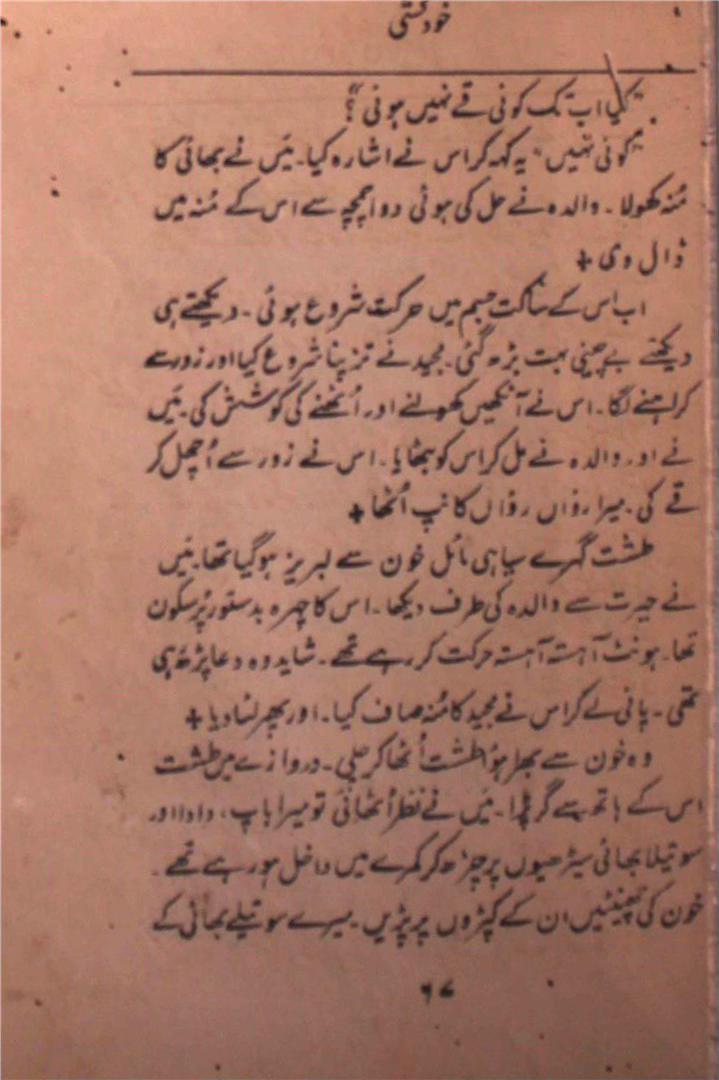 خودکشی
"کیا اب تک کوئی قے نہیں ہوئی"؟
"کوئی نہیں" یہ کہہ کر اس نے اشارہ کیا۔ میَں نے بھائی کا
مُنہ کھولا۔ والدہ نے حل کی ہوئی دوا چمچہ سے اس کے مُنہ میں
ڈال دی +
اب اس کے ساکت جسم میں حرکت شروع ہوئی۔ دیکھتے ہی
دیکھتے بے چینی بہت بڑھ گئی۔ مجید نے تڑپنا شروع کیا اور زور سے
کراہنے لگا۔ اس نے آنکھیں کھولنے اور اُٹھنے کی کوشش کی۔ میَں
نے اور والدہ نے مل کر اس کو بٹھایا۔ اس نے زور سے اُچھل کر
قے کی۔ میرا رؤاں رؤاں کانپ اُٹھا +
طشت گہرے سیاہی مائل خون سے لبریز ہوگیا تھا۔ میَں
نے حیرت سے والدہ کی طرف دیکھا۔ اس کا چہرہ بدستور پُرسکون
تھا۔ ہونٹ آہستہ آہستہ حرکت کر رہے تھے۔ شاید وہ دعا پڑھ رہی
تھی۔ پانی لے کر اس نے مجید کا مُنہ صاف کیا۔ اور پھر لٹا دیا +
وہ خون سے بھرا ہوُا طشت اُٹھا کر چلی۔ دروازے میں طشت
اس کے ہاتھ سے گر پڑا۔ میَں نے نظر اُٹھائی تو میرا باپ، دادا اور
سوتیلا بھائی سیڑھیوں پر چڑھ کر کمرے میں داخل ہو رہے تھے۔
خون کی چھینٹیں ان کے کپڑوں پر پڑیں۔ میرے سوتیلے بھائی کے
۶۷